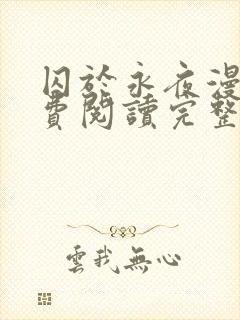 囚於永夜漫
費閱讀完整
雲我無心